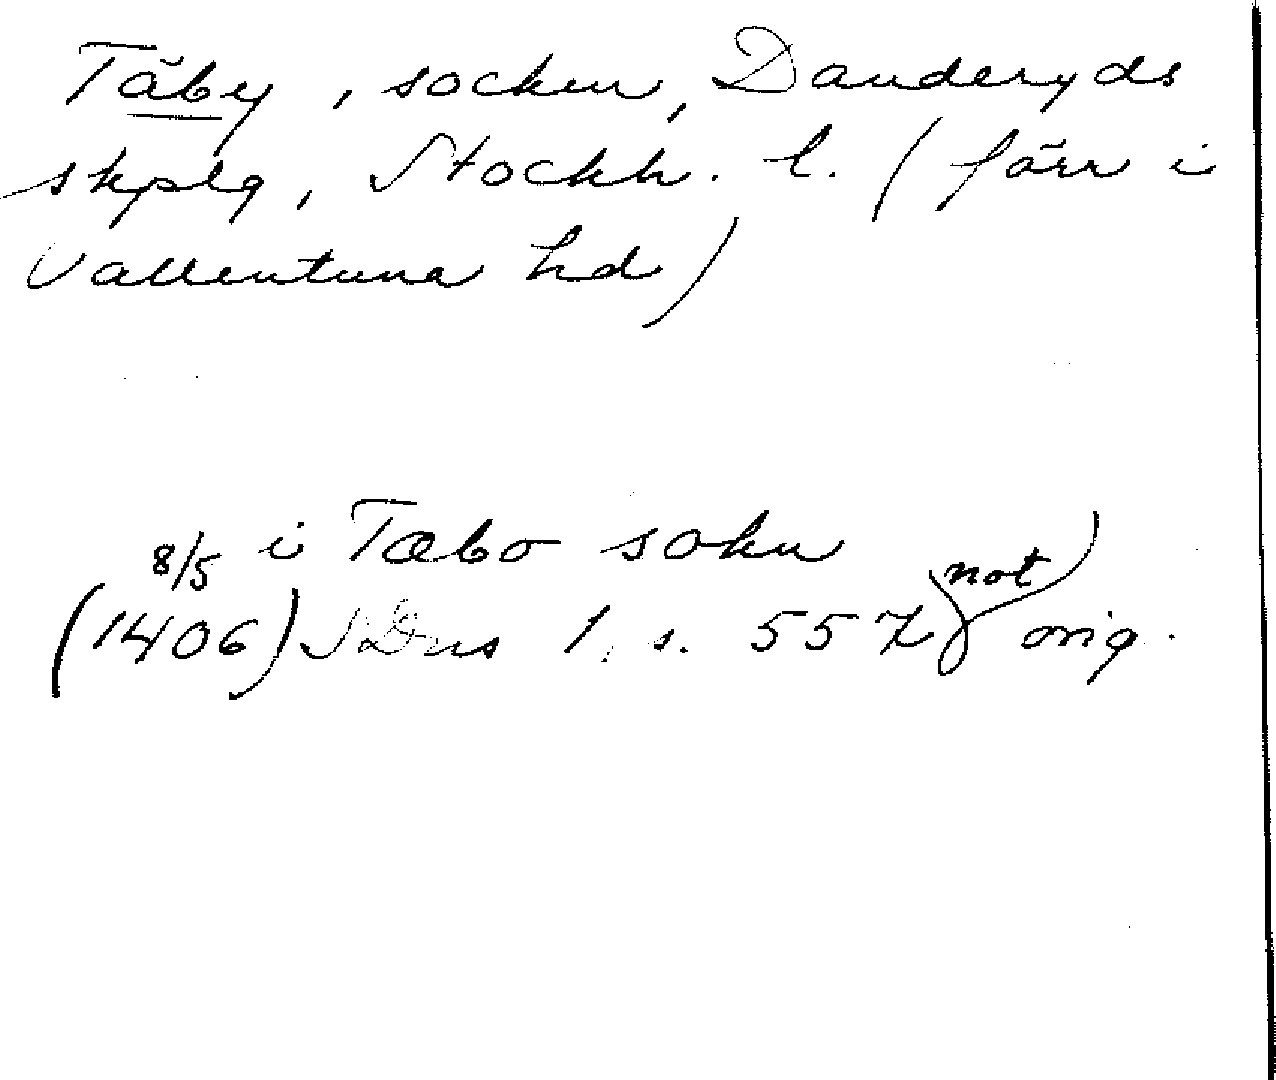 Täby, socken, Danderyds
skplg, Stockh. l. (förr i
Vallentuna hd)
8/5 i Tæbo sokn
(1406) SDns 1, s. 557 (not) orig.